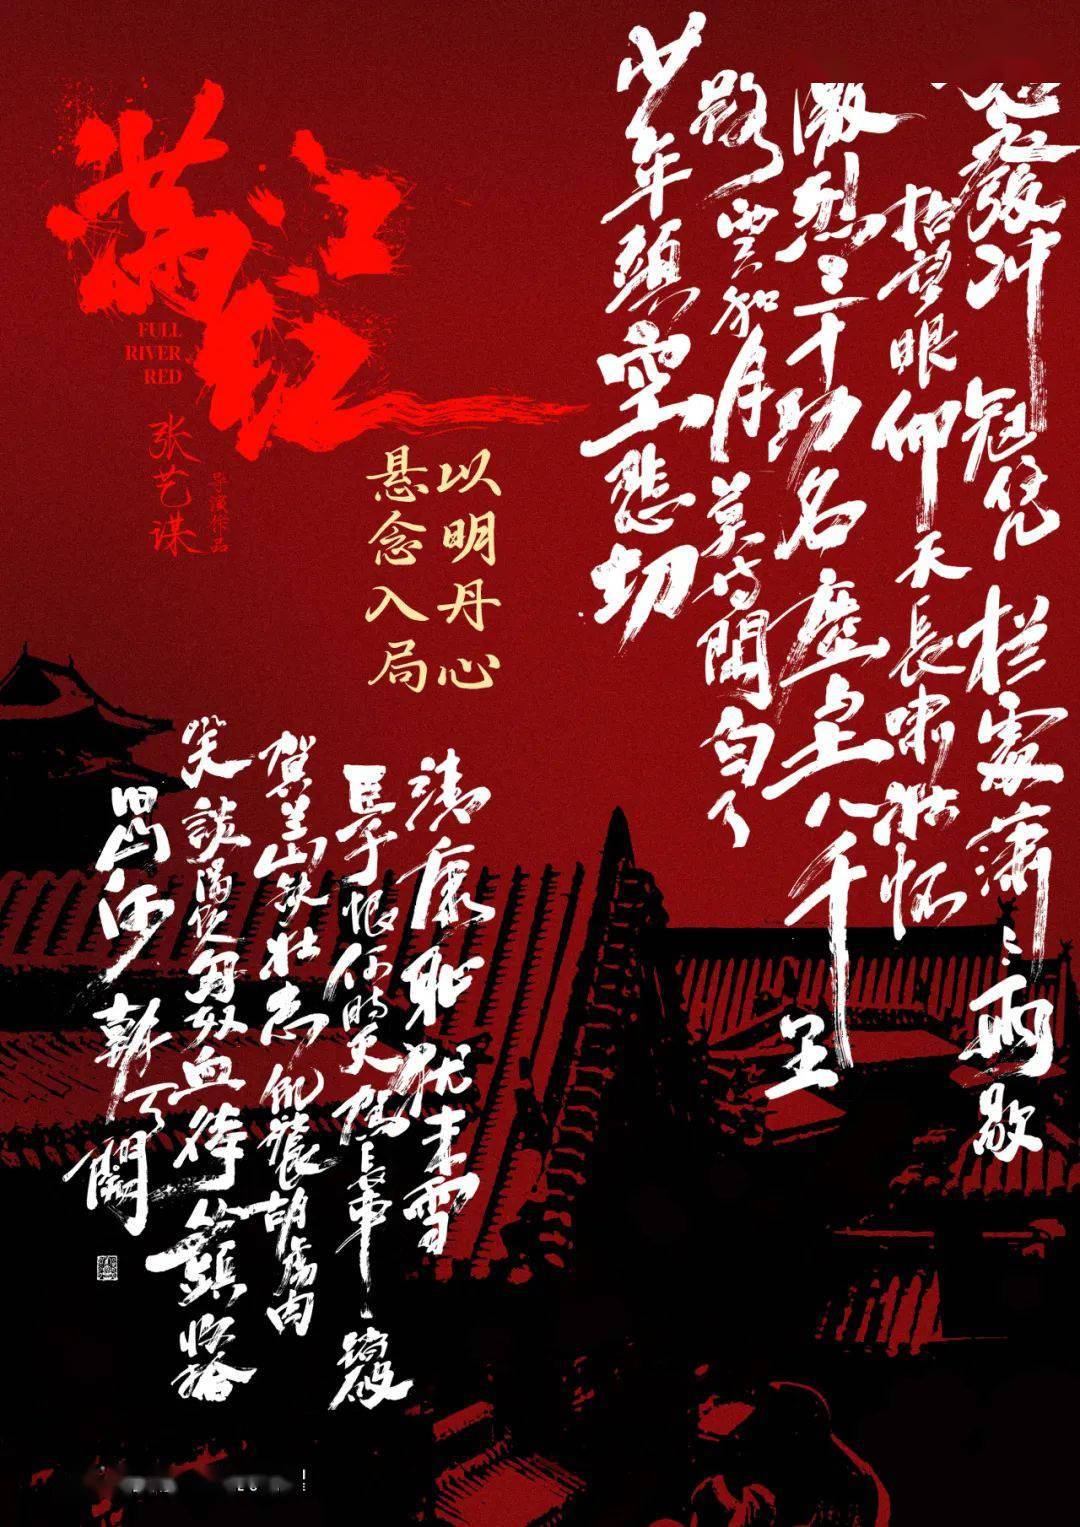 满江红
FULL
RIVER
RED
张艺谋
导演作品
以明丹心
悬念入局
髮冲冠凭栏處潇潇雨歇
抬望眼仰天長啸壮怀
激烈三十功名塵与土八千里
路雲和月莫等閒白了
少年頭空悲切
靖康耻犹未雪
臣子恨何時灭驾長車踏破
賀兰山缺壮志飢餐胡虏肉
笑談渴饮匈奴血待從頭收拾
旧山河朝天闕